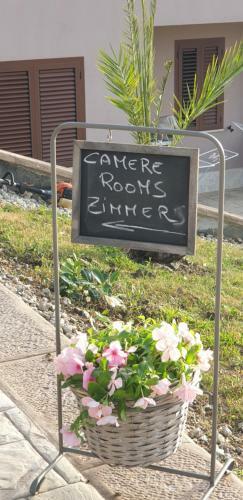 CAMERE
ROOMS
ZIMMERS